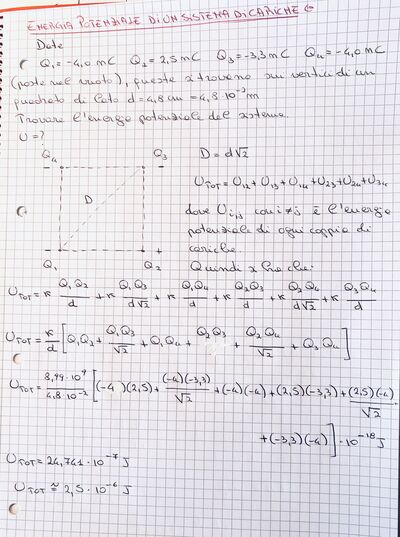 ENERGIA POTENZIALE DI UN SISTEMA DI CARICHE
Date
Q₁ = -4,0 mC Q₂ = 2,5 mC Q₃ = -3,3 mC Q₄ = -4,0 mC
(poste nel vuoto), queste si trovano su vertici di un
quadrato di lato d = 4,8 cm = 4,8 · 10⁻² m
Trovare l'energia potenziale del sistema.
U = ?
Q₄ Q₃ D = d√2
- -
U_TOT = U₁₂ + U₁₃ + U₁₄ + U₂₃ + U₂₄ + U₃₄
D
dove U_{i,j} con i ≠ j è l'energia
potenziale di ogni coppia di
- +
cariche.
Q₁ Q₂ Quindi si ha che:
U_TOT = κ Q₁Q₂/d + κ Q₁Q₃/d√2 + κ Q₁Q₄/d + κ Q₂Q₃/d + κ Q₂Q₄/d√2 + κ Q₃Q₄/d
U_TOT = κ/d [Q₁Q₂ + Q₁Q₃/√2 + Q₁Q₄ + Q₂Q₃ + Q₂Q₄/√2 + Q₃Q₄]
U_TOT = 8,99 · 10⁹/4,8 · 10⁻² [(-4)(2,5) + (-4)(-3,3)/√2 + (-4)(-4) + (2,5)(-3,3) + (2,5)(-4)/√2
+ (-3,3)(-4)] · 10⁻¹⁸ J
U_TOT = 24,741 · 10⁻⁷ J
U_TOT ≈ 2,5 · 10⁻⁶ J